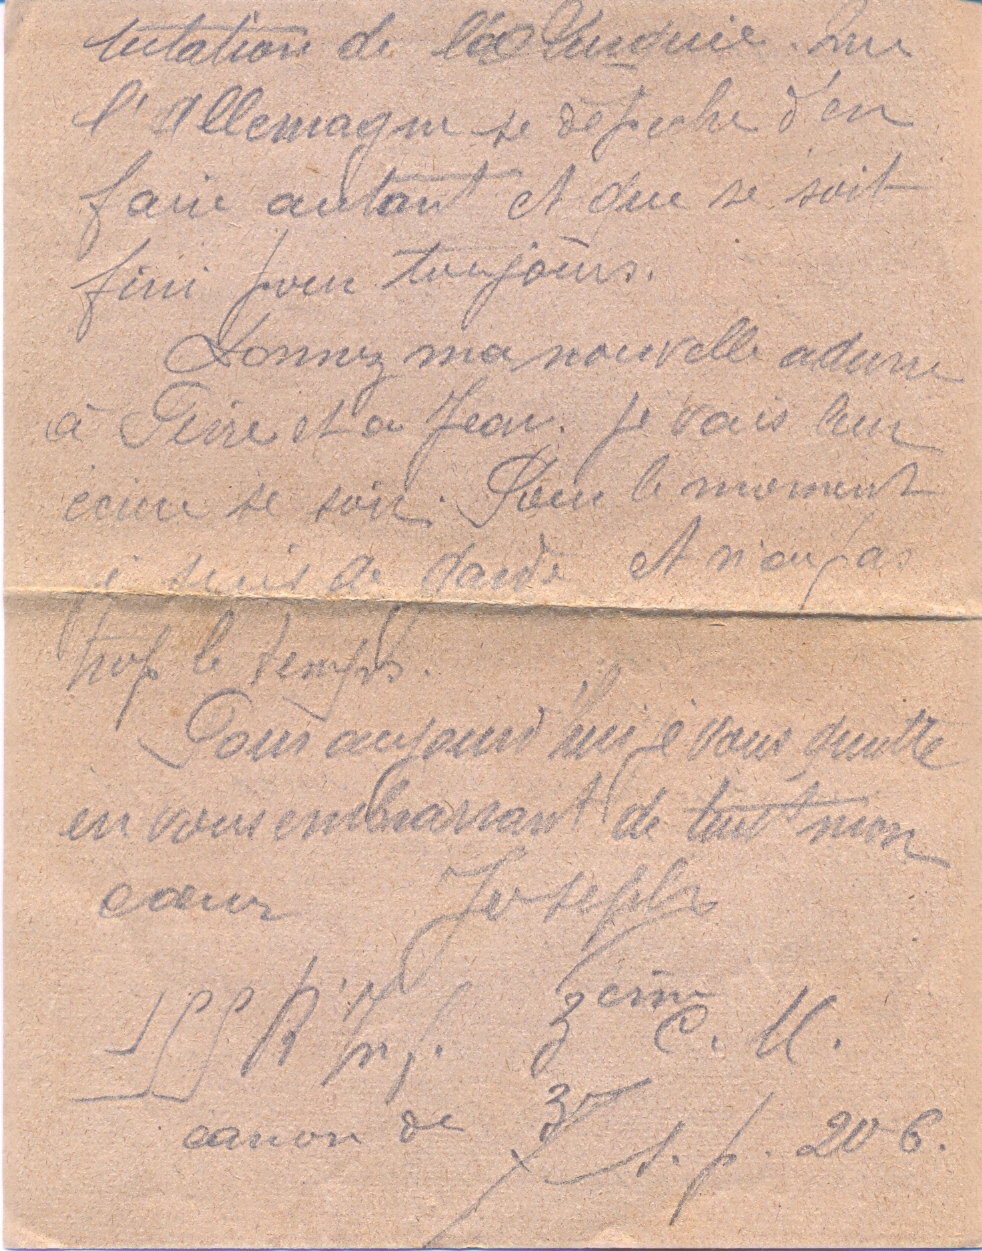 tutation de la Turquie. Que
l'Allemagne se dépeche d'en
faire autant et que se soit
fini pour toujours.
Donnez ma nouvelle adresse
à Pierre et a Jean. Je vais leur
écrire se soir. Pour le moment
je suis de garde et n'ai pas
trop le temps.
Pour aujourd'hui je vous quitte
en vous embrassant de tout mon
cœur Joseph
R. I. 3eme C. M.
canon de 37
S. p. 206.